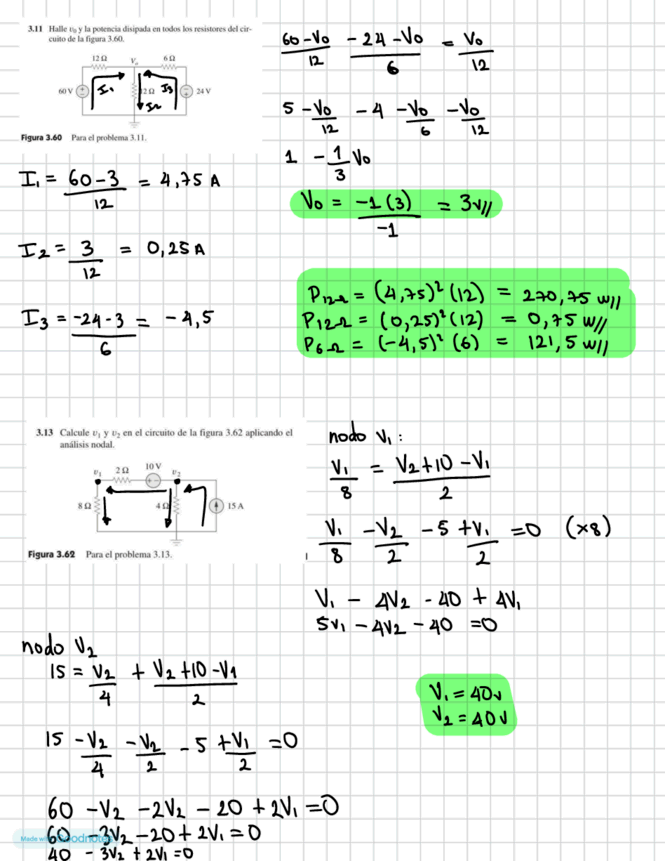 3.11 Halle v₀ y la potencia disipada en todos los resistores del circuito de la figura 3.60.
12 Ω V₀ 6 Ω
60 V I₁ 12 Ω I₂ I₃ 24 V
Figura 3.60 Para el problema 3.11.
(60-V₀)/12 (-24-V₀)/6 = V₀/12
5 -V₀/12 -4 -V₀/6 -V₀/12
1 -1/3 V₀
V₀ = -1(3)/-1 = 3v//
I₁ = (60-3)/12 = 4,75 A
I₂ = 3/12 = 0,25 A
I₃ = (-24-3)/6 = -4,5
P12Ω = (4,75)² (12) = 270,75 w//
P12Ω = (0,25)² (12) = 0,75 w//
P6Ω = (-4,5)² (6) = 121,5 w//
3.13 Calcule v₁ y v₂ en el circuito de la figura 3.62 aplicando el análisis nodal.
v₁ 2 Ω 10 V v₂
8 Ω 4 Ω 15 A
Figura 3.62 Para el problema 3.13.
nodo V₁ :
V₁/8 = (V₂+10-V₁)/2
V₁/8 -V₂/2 -5 +V₁/2 =0 (×8)
V₁ - 4V₂ - 40 + 4V₁
5V₁ - 4V₂ - 40 =0
nodo V₂
15 = V₂/4 + (V₂+10-V₁)/2
15 -V₂/4 -V₂/2 -5 +V₁/2 =0
60 -V₂ -2V₂ -20 +2V₁ =0
60 -3V₂ -20 + 2V₁ =0
40 - 3V₂ + 2V₁ =0
V₁ = 40v
V₂ = 40v
Made with Goodnotes